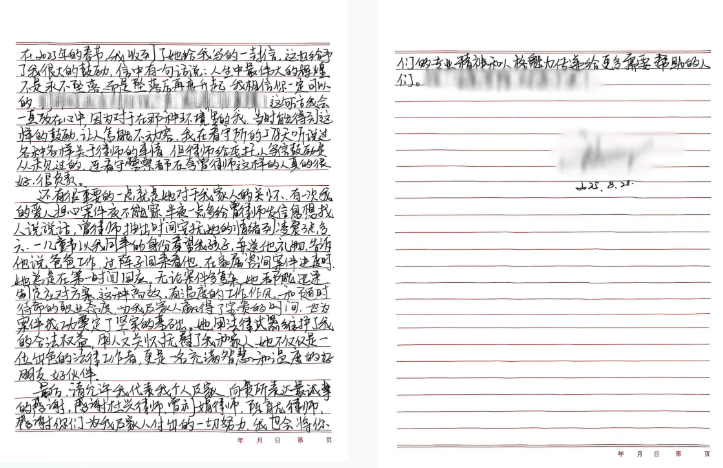 在2025年的春节,我收到了她给我写的一封信。这封信给予
了我很大的鼓励,信中有句话说:人生中最伟大的辉煌
不是永不坠落,而是坠落后再度升起,我相信你一定可以
的 这句话我会
一直放在心中,因为对于在那种环境里的我,当时能得到这
样的鼓励,让人怎能不动容。我在看守所的578天听说过
各种各样关于律师的事情,但律师给在押人员写信鼓励是
从未见过的,连看守警察都在夸曾律师这样的人真的很
好,很负责。
还有很重要的一点就是她对于我家人的关怀,有一次我
的爱人担心案件夜不能寐,半夜一点多给曾律师发信息想找
人说说话,曾律师抽出时间安抚她的情绪到凌晨3点多
六一儿童节以我同事的身份看望我孩子,并送他礼物,告诉
他说,爸爸工作,过阵子回来看他。在家属咨询案件进度时
她总是在第一时间回应,无论案件多复杂,她都能迅速
制定应对方案,这种高效、有温度的工作作风,和随时
待命的职业态度,为我及家人赢得了宝贵的时间,也为
案件成功奠定了坚实的基础。她用法律武器维护了我
的合法权益,用人文关怀抚慰了我和家人,她不仅仅是一
位出色的法律工作者,更是一名充满智慧和温度的好
朋友、好伙伴。
最后,请允许我代表我个人及家人,向贵所表达最诚挚
的感谢,感谢 律师,曾 律师,陈 律师,
感谢你们为我及家人付出的一切努力,我也会将你
年 月 日 第 页
们的专业精神和人格魅力传递给更多需要帮助的人
们。
2025. 8. 28.
年 月 日 第 页